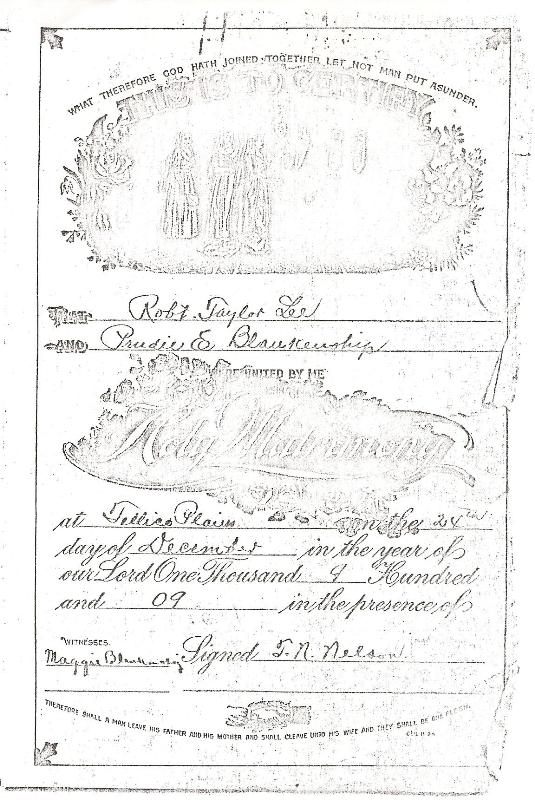 WHAT THEREFORE GOD HATH JOINED TOGETHER LET NOT MAN PUT ASUNDER.
THIS IS TO CERTIFY
THAT Robt. Taylor Lee
AND Prudie E Blankenship
WERE UNITED BY ME
Holy Matrimony
at Tellico Plains on the 24th
day of December in the year of
our Lord One Thousand 9 Hundred
and 09 in the presence of
WITNESSES.
Maggie Blankenship Signed T. N. Nelson
THEREFORE SHALL A MAN LEAVE HIS FATHER AND HIS MOTHER AND SHALL CLEAVE UNTO HIS WIFE AND THEY SHALL BE ONE FLESH.